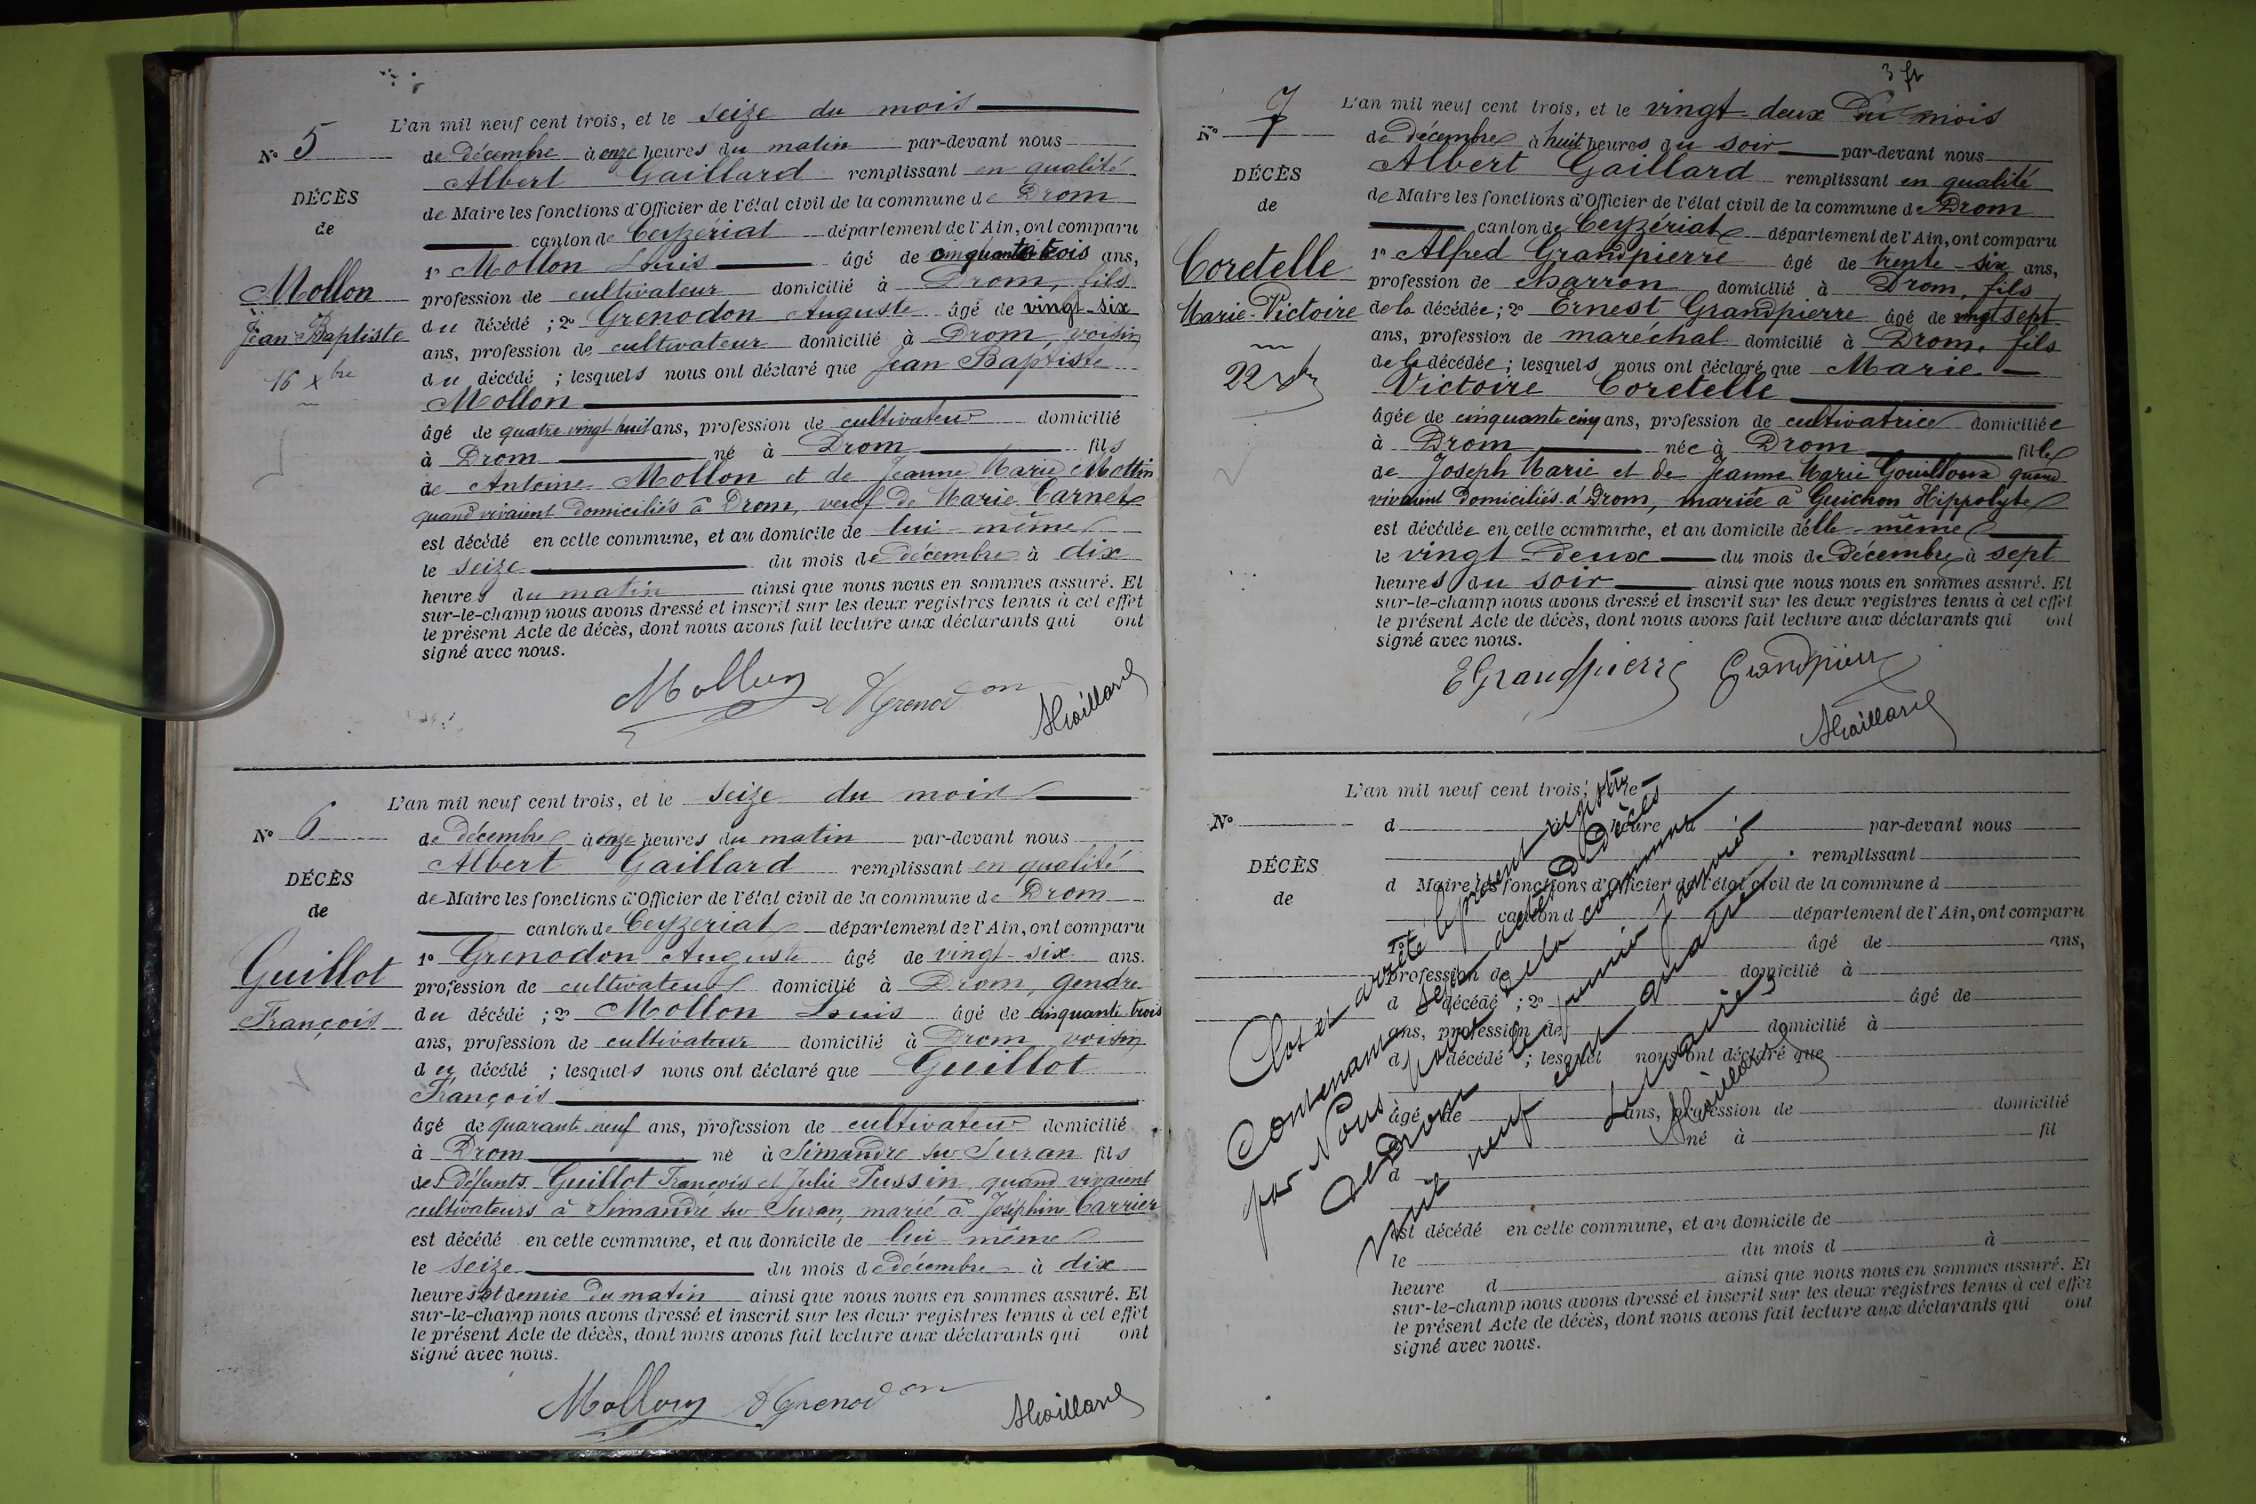 N° 5
DÉCÈS
de
Mollon
Jean Baptiste
16 Xbre
L'an mil neuf cent trois, et le seize du mois
de décembre à onze heures du matin par-devant nous
Albert Gaillard remplissant en qualité
de Maire les fonctions d'Officier de l'état civil de la commune de Drom
canton de Ceyzériat département de l'Ain, ont comparu
1° Mollon Louis âgé de cinquante trois ans,
profession de cultivateur domicilié à Drom, fils
du décédé ; 2° Grenodon Auguste âgé de vingt-six
ans, profession de cultivateur domicilié à Drom, voisin
du décédé ; lesquels nous ont déclaré que Jean Baptiste
Mollon
âgé de quatre vingt huit ans, profession de cultivateur domicilié
à Drom né à Drom fils
de Antoine Mollon et de Jeanne Marie Mottin
quand vivaient domiciliés à Drom, veuf de Marie Carnet
est décédé en cette commune, et au domicile de lui-même
le seize du mois de décembre à dix
heures du matin ainsi que nous nous en sommes assuré. Et
sur-le-champ nous avons dressé et inscrit sur les deux registres tenus à cet effet
le présent Acte de décès, dont nous avons fait lecture aux déclarants qui ont
signé avec nous.
Mollon AGrenodon AGaillard
N° 6
DÉCÈS
de
Guillot
François
L'an mil neuf cent trois, et le seize du mois
de décembre à onze heures du matin par-devant nous
Albert Gaillard remplissant en qualité
de Maire les fonctions d'Officier de l'état civil de la commune de Drom
canton de Ceyzériat département de l'Ain, ont comparu
1° Grenodon Auguste âgé de vingt-six ans.
profession de cultivateur domicilié à Drom, gendre
du décédé ; 2° Mollon Louis âgé de cinquante trois
ans, profession de cultivateur domicilié à Drom voisin
du décédé ; lesquels nous ont déclaré que Guillot
François
âgé de quarante neuf ans, profession de cultivateur domicilié
à Drom né à Simandre sur Suran fils
des défunts Guillot François et Julie Pussin quand vivaient
cultivateurs à Simandre sur Suran, marié à Joséphine Carrier
est décédé en cette commune, et au domicile de lui-même
le seize du mois de décembre à dix
heures et demie du matin ainsi que nous nous en sommes assuré. Et
sur-le-champ nous avons dressé et inscrit sur les deux registres tenus à cet effet
le présent Acte de décès, dont nous avons fait lecture aux déclarants qui ont
signé avec nous.
Mollon AGrenodon AGaillard
N° 7
DÉCÈS
de
Coretelle
Marie-Victoire
22 Xbre
L'an mil neuf cent trois, et le vingt-deux du mois
de décembre à huit heures du soir par-devant nous
Albert Gaillard remplissant en qualité
de Maire les fonctions d'Officier de l'état civil de la commune de Drom
canton de Ceyzériat département de l'Ain, ont comparu
1° Alfred Grandpierre âgé de trente-six ans,
profession de charron domicilié à Drom, fils
de la décédée ; 2° Ernest Grandpierre âgé de vingt sept
ans, profession de maréchal domicilié à Drom, fils
de la décédée ; lesquels nous ont déclaré que Marie
Victoire Coretelle
âgée de cinquante cinq ans, profession de cultivatrice domiciliée
à Drom née à Drom fille
de Joseph Marie et de Jeanne Marie Gouilloux quand
vivaient domiciliés à Drom, mariée à Guichon Hippolyte
est décédée en cette commune, et au domicile d'elle-même
le vingt deux du mois de décembre à sept
heures du soir ainsi que nous nous en sommes assuré. Et
sur-le-champ nous avons dressé et inscrit sur les deux registres tenus à cet effet
le présent Acte de décès, dont nous avons fait lecture aux déclarants qui ont
signé avec nous.
EGrandpierre Grandpierre
AGaillard
N°
DÉCÈS
de
L'an mil neuf cent trois, et le
d à heure d par-devant nous
remplissant
d Maire les fonctions d'Officier de l'état civil de la commune d
canton d département de l'Ain, ont comparu
1° âgé de ans,
profession de domicilié à
d décédé ; 2° âgé de
ans, profession de domicilié à
d décédé ; lesquel nous ont déclaré que
âgé de ans, profession de domicilié
à né à fil
d
est décédé en cette commune, et au domicile de
le du mois d à
heure d ainsi que nous nous en sommes assuré. Et
sur-le-champ nous avons dressé et inscrit sur les deux registres tenus à cet effet
le présent Acte de décès, dont nous avons fait lecture aux déclarants qui ont
signé avec nous.
Clos et arrêté le présent registre
Contenant sept actes de Décès
par Nous, Maire de la commune
de Drom le premier Janvier
mil neuf cent quatre.
Le Maire
AGaillard